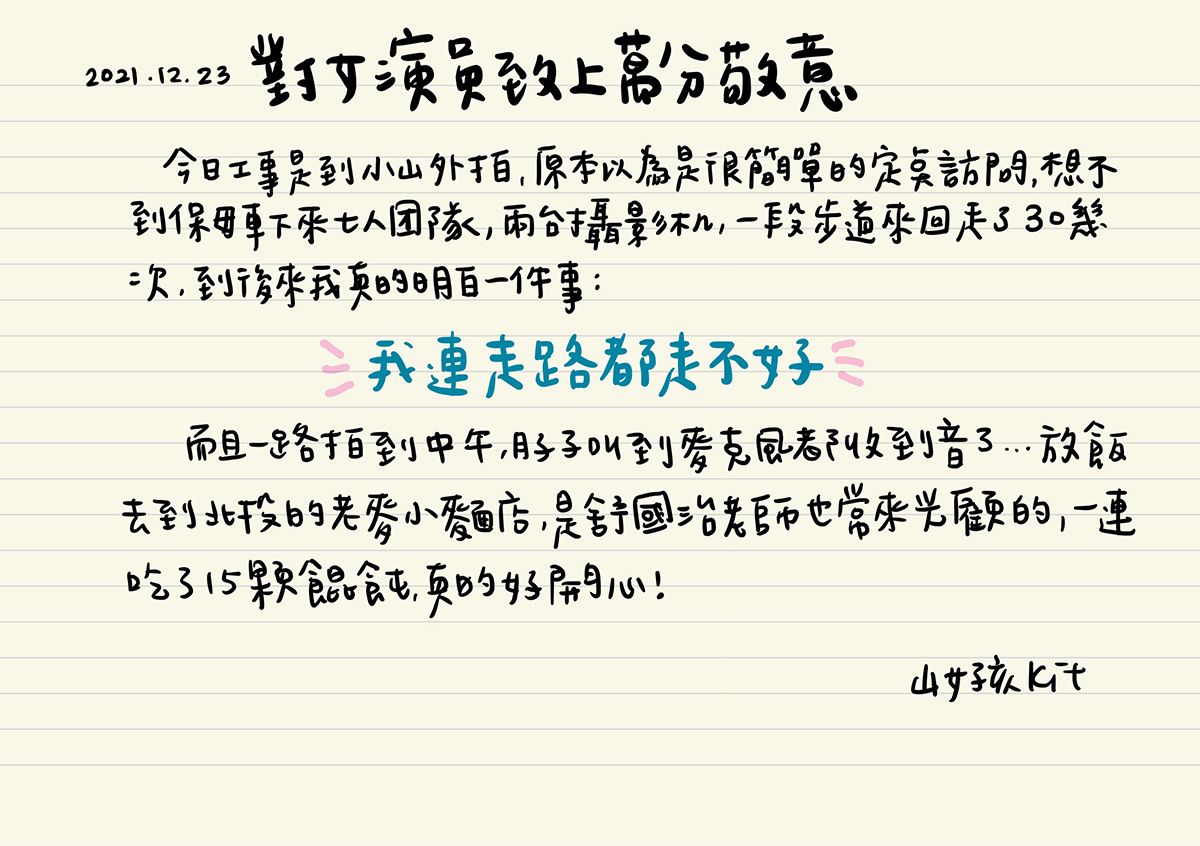 2021.12.23 對女演員致上萬分敬意
今日工事是到小山外拍,原本以為是很簡單的定點訪問,想不
到保母車下來七人團隊,兩台攝影机,一段步道來回走了30幾
次,到後來我真的明白一件事:
我連走路都走不好
而且一路拍到中午,肚子叫到麥克風都收到音了...放飯
去到北投的老麥小麵店,是舒國治老師也常來光顧的,一連
吃了15顆餛飩,真的好開心!
山女孩Kit